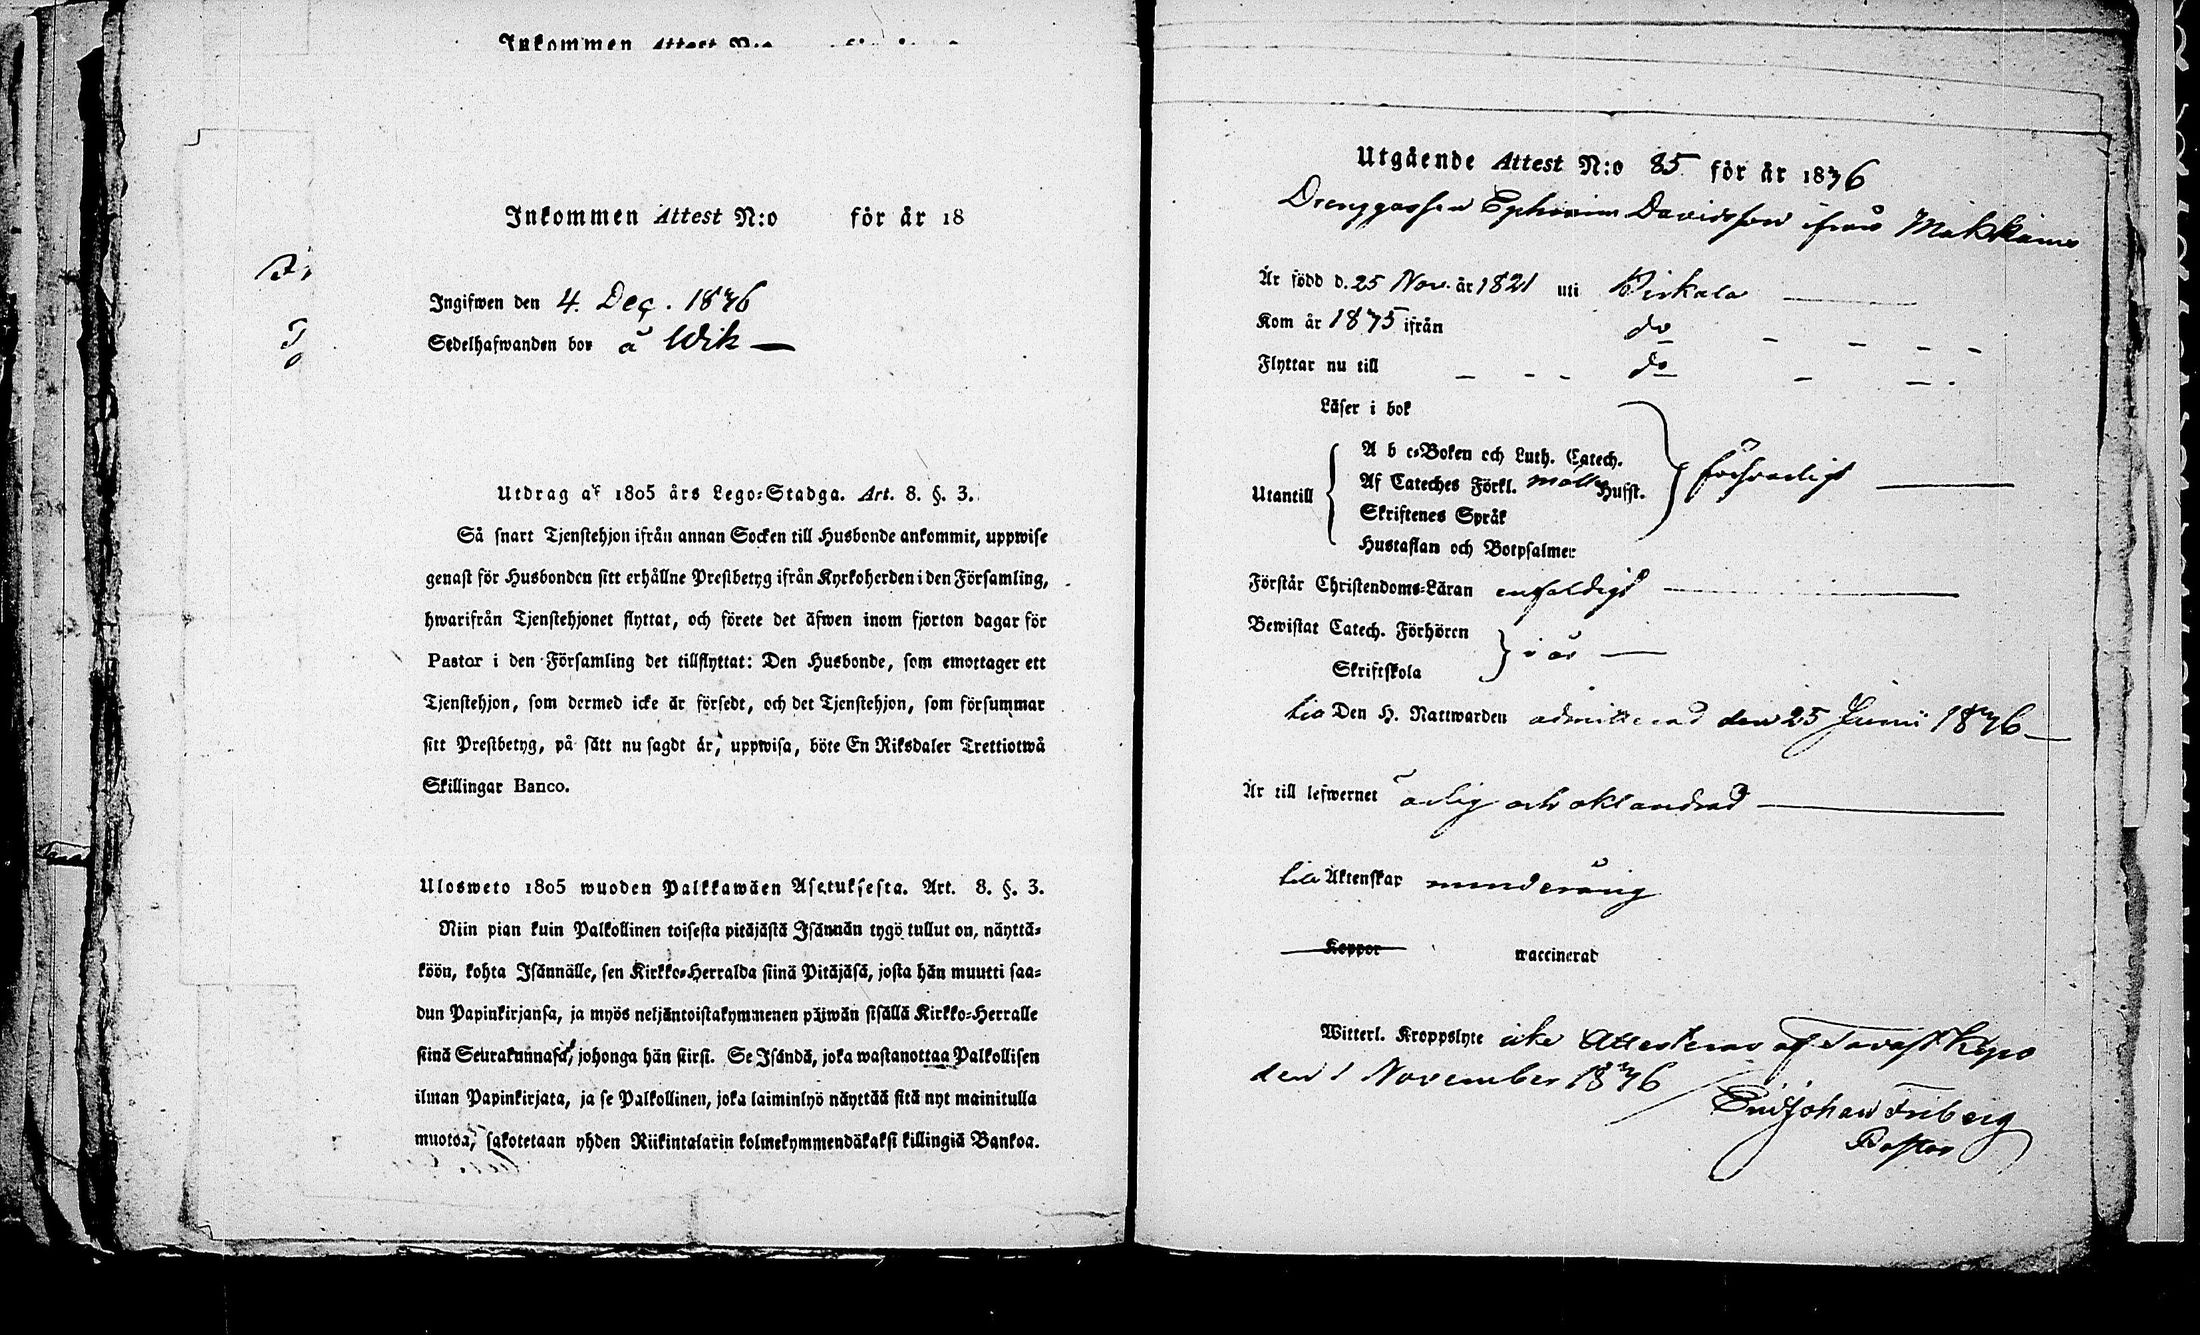 Inkommen Attest N:o
Inkommen Attest N:o för år 18
Ingifwen den 4. Dec. 1836
Sedelhafwanden bor å Wik —
Utdrag af 1805 års Lego-Stadga. Art. 8. §. 3.
Så snart Tjenstehjon ifrån annan Socken till Husbonde ankommit, uppwise
genast för Husbonden sitt erhållne Prestbetyg ifrån Kyrkoherden i den Församling,
hwarifrån Tjenstehjonet flyttat, och förete det äfwen inom fjorton dagar för
Pastor i den Församling det tillflyttat: Den Husbonde, som emottager ett
Tjenstehjon, som dermed icke är försedt, och det Tjenstehjon, som försummar
sitt Prestbetyg, på sätt nu sagdt är, uppwisa, böte En Riksdaler Trettiotwå
Skillingar Banco.
Ulosweto 1805 wuoden Palkkawäen Asetuksesta. Art. 8. §. 3.
Niin pian kuin Palkollinen toisesta pitäjästä Isännän tygö tullut on, näyttä-
köön, kohta Isännälle, sen Kirkko-Herralda siinä Pitäjäsä, josta hän muutti saa-
dun Papinkirjansa, ja myös neljäntoistakymmenen päiwän sisällä Kirkko-Herralle
siinä Seurakunnasa, johonga hän siirsi. Se Isändä, joka wastanottaa Palkollisen
ilman Papinkirjata, ja se Palkollinen, joka laiminlyö näyttää sitä nyt mainitulla
muotoa, sakotetaan yhden Riikintalarin kolmekymmendäkaksi killingiä Bankoa.
Utgående Attest N:o 85 för år 1836
Drenggossen Ephraim Davidsson ifrån
Är född d. 25 Nov. år 1821 uti Birkala
Kom år 1835 ifrån do
Flyttar nu till do
Läser i bok
A b c-Boken och Luth. Catech.
Utantill Af Cateches Förkl. Husst. försvarligt
Skriftenes Språk
Hustaflan och Botpsalmer
Förstår Christendoms-Läran enfaldigt
Bewistat Catech. Förhören
i år
Skriftskola
till Den H. Nattwarden admitterad den 25 Junii 1836
Är till lefwernet ärlig och oklandrad
till Äktenskap minderårig
Koppor waccinerad
Witterl. Kroppslyte icke Attesteras af Tavastkyro
den 1 November 1836
Johan Friberg
Pastor